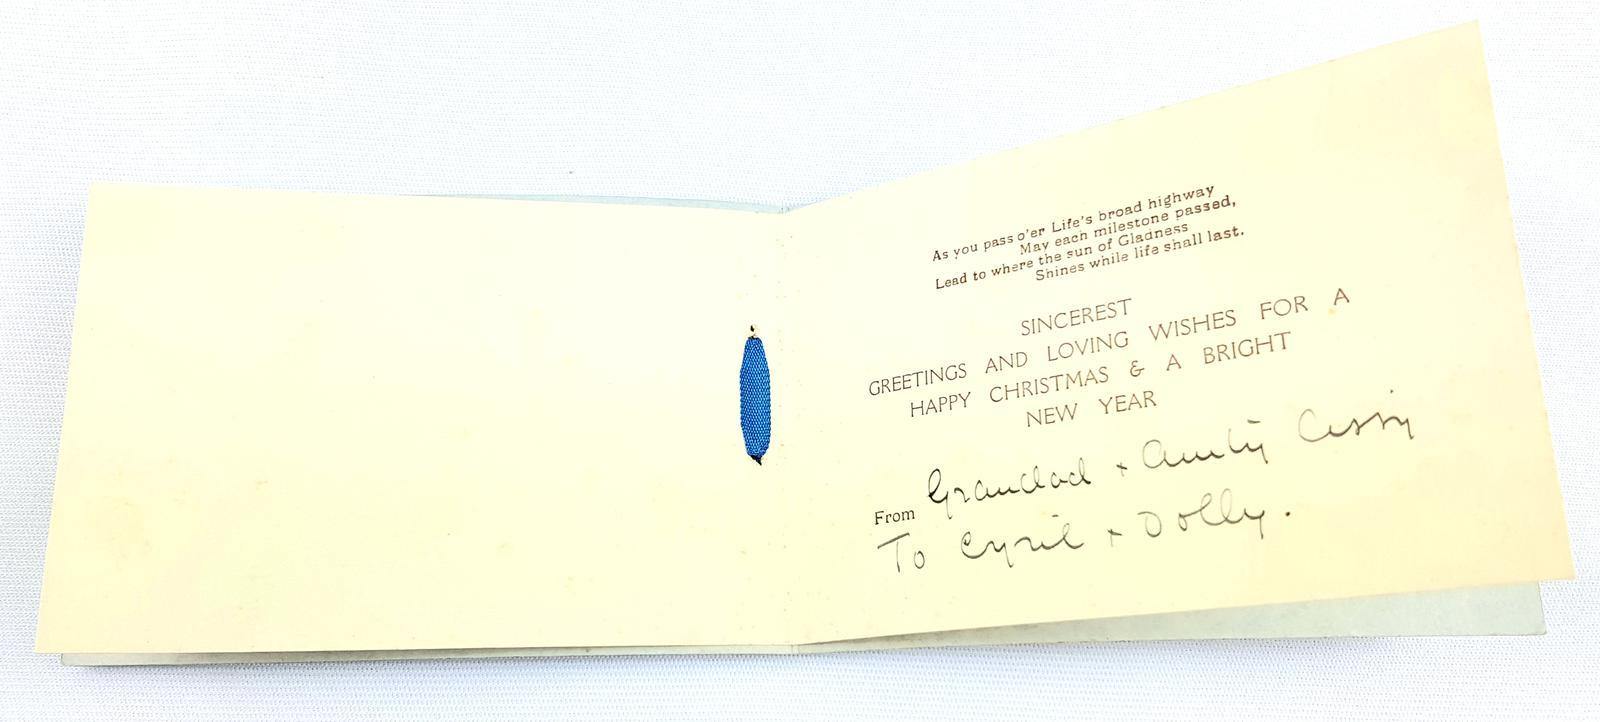 As you pass o'er Life's broad highway
May each milestone passed,
Lead to where the sun of Gladness
Shines while life shall last.
SINCEREST
GREETINGS AND LOVING WISHES FOR A
HAPPY CHRISTMAS & A BRIGHT
NEW YEAR
From Grandad + Aunty Cissy
To Cyril + Dolly.